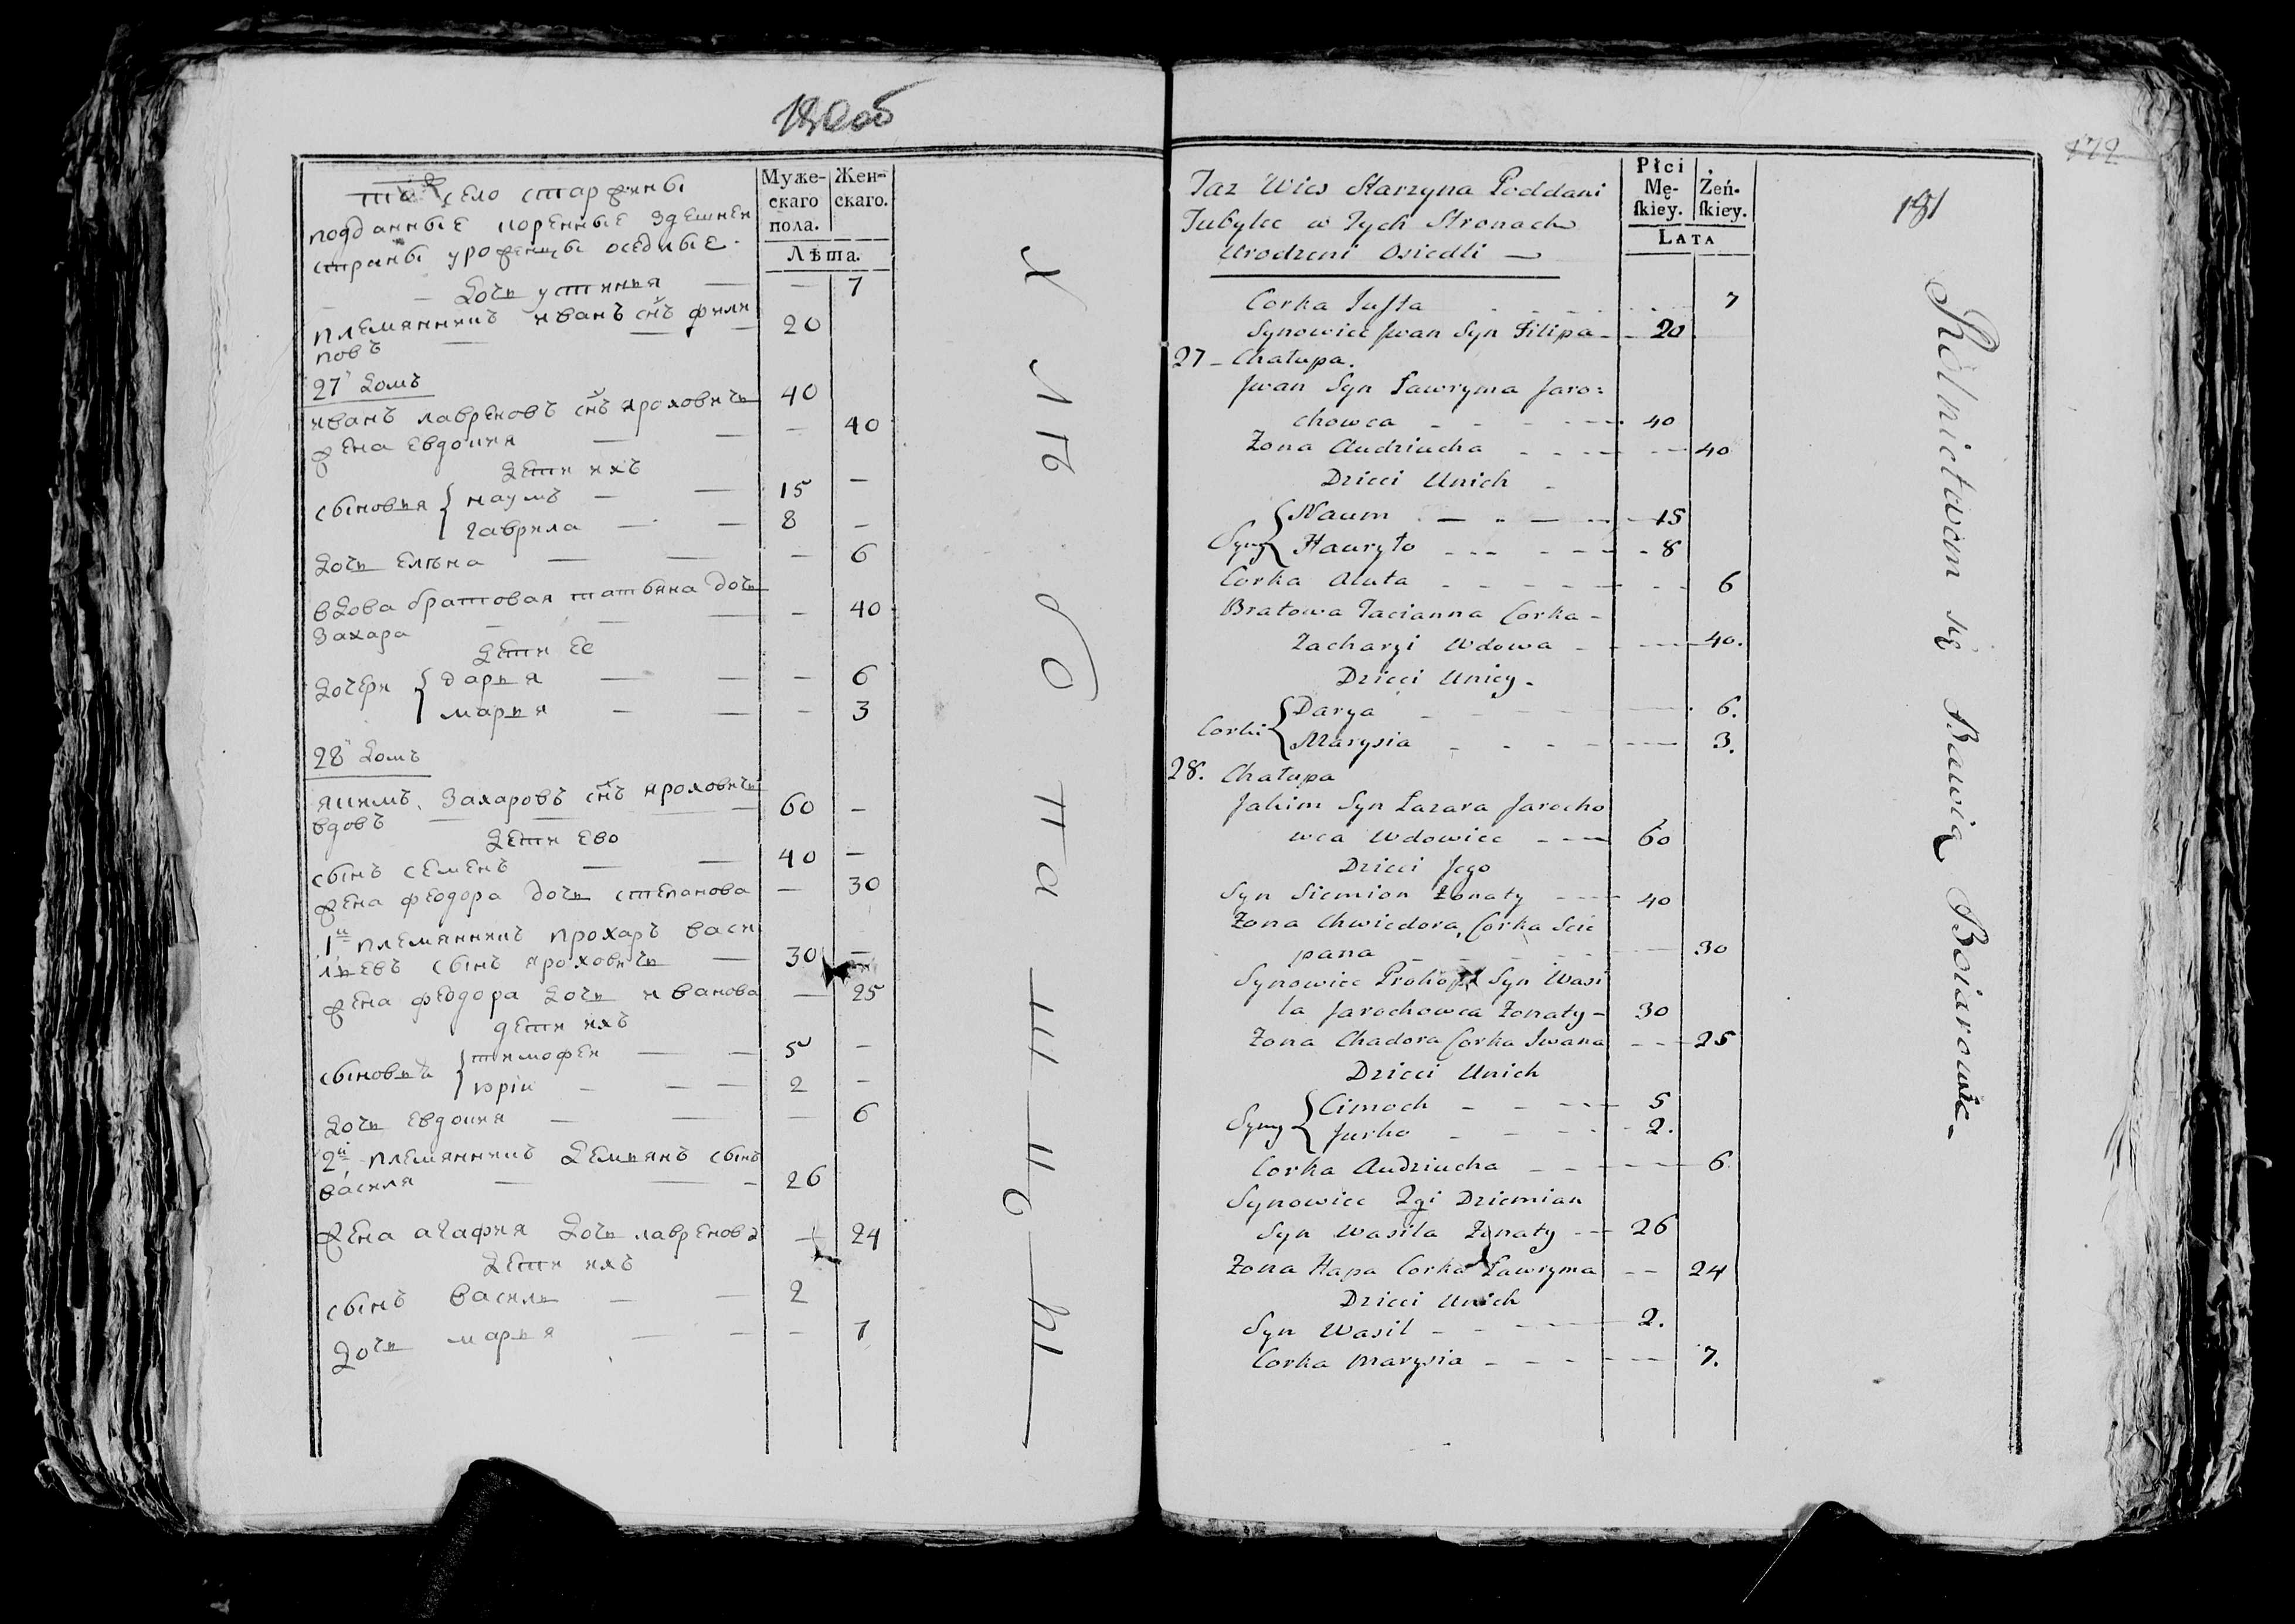 180об
та же село старжины
подданные коренные здешнеи
страны уроженцы оседлые.
Муже-
скаго
пола.
Жен-
скаго.
Лѣта.
дочь устинья — — 7
племянникъ иванъ сн̃ъ фили
повъ — — 20
27й домъ
иванъ лавреновъ сн̃ъ яроховичь 40
жена евдокия — — — 40
дети ихъ
сыновья { наумъ — — 15 —
гаврила — — 8 —
дочь елѣна — — — 6
вдова братовая татьяна дочь
захара — — — — 40
дети ее
дочери { дарья — — — 6
марья — — — 3
28й домъ
якимъ захаровъ сн̃ъ яроховичь
вдовъ — — — 60 —
дети ево
сынъ семенъ — — 40 —
жена феодора дочь степанова — 30
1й племянникъ прохаръ васи
льевъ сынъ яроховичь — 30 —
жена феодора дочь иванова — 25
дети ихъ
сыновья { тимофеи — — 5 —
юріи — — — 2 —
дочь евдокия — — — 6
2й племянникъ демьянъ сынъ
василя — — — 26
жена агафия дочь лавренова — 24
дети ихъ
сынъ василь — — 2
дочь марья — — — 7
хлѣбопашцы
172
181
Taz Wies Starzyna Poddani
Tubylce w Tych Stronach
Urodzeni Osiedli —
Płci
Mę-
skiey.
Żeń-
skiey.
Lata
Corka Justa 7
Synowiec Jwan Syn Filipa — 20
27 — Chałupa.
Jwan Syn Ławryma Jaro:
chowca — — 40
Zona Audziucha — — 40
Dzieci Unich
Syny { Naum — — 15
Hauryło — — 8
Corka Aluta — — 6
Bratowa Tacianna Corka —
Zacharyi Wdowa — — 40.
Dzieci Unicy —
Corki { Darya — — 6.
Marysia — — 3.
28. Chałupa
Jakim Syn Łazara Jarocho
wca Wdowiec — — 60
Dzieci Jego
Syn Siemion Zonaty — — 40
Zona Chwiedora, Corka Scie
pana — — 30
Synowiec Prokop Syn Wasi
la Jarochowca Zonaty — 30
Zona Chadora Corka Jwana — — 25
Dzieci Unich
Syny { Cimoch — — 5
Jurko — — 2.
Corka Audziucha — — 6
Synowiec 2gi Dziemian
Syn Wasila Zonaty — — 26
Zona Hapa Corka Ławryma — — 24
Dzieci Unich
Syn Wasil — — 2.
Corka Marysia — — 7.
Rolnictwem się Bawią Boiarowie —